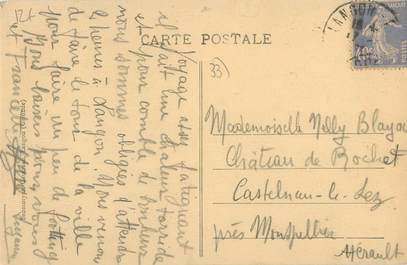 CARTE POSTALE
Voyage assez fatiguant
il fait une chaleur torride
et pour comble de bonheur
nous sommes obligées d'attendre
2 heures à Langon. Nous venons
de faire le tour de la ville
pour faire un peu de footing
Bons baisers pour vous
et Francette
LANGON
33
Mademoiselle Nelly Blayac
Château de Rochet
Castelnau-le-Lez
près Montpellier
Hérault